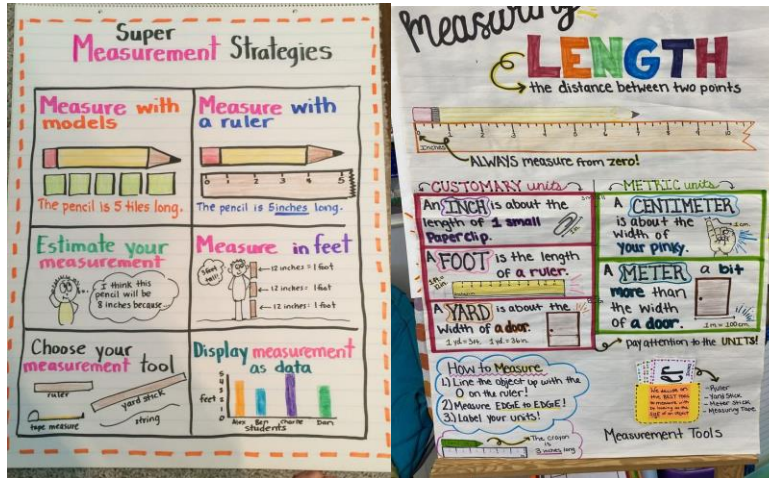 Super
Measurement Strategies
Measure with
models
The pencil is 5 tiles long.
Measure with
a ruler
0 1 2 3 4 5
The pencil is 5inches long.
Estimate your
measurement
I think this
pencil will be
8 inches because...
Measure in feet
3 feet
tall!
12 inches = 1 foot
12 inches = 1 foot
12 inches = 1 foot
Choose your
measurement tool
ruler
yard stick
tape measure
string
Display measurement
as data
feet
5
4
3
2
1
0
Alex Ben Charlie Dan
students
Measuring
LENGTH
the distance between two points
Inches
ALWAYS measure from zero!
CUSTOMARY units
An INCH is about the
length of 1 small
Paperclip.
A FOOT is the length
of a ruler.
1ft =
12in.
A YARD is about the
width of a door.
1 yd = 3ft. 1 yd = 36in.
METRIC units
A CENTIMETER
is about the
width of
your pinky.
1cm
A METER a bit
more than
the width
of a door.
1m = 100cm
pay attention to the UNITS!
How to Measure
1.) Line the object up with the
0 on the ruler!
2.) Measure EDGE to EDGE!
3.) Label your units!
The crayon
is
3 inches long
- Ruler
- Yard Stick
- Meter Stick
- Measuring Tape
Measurement Tools